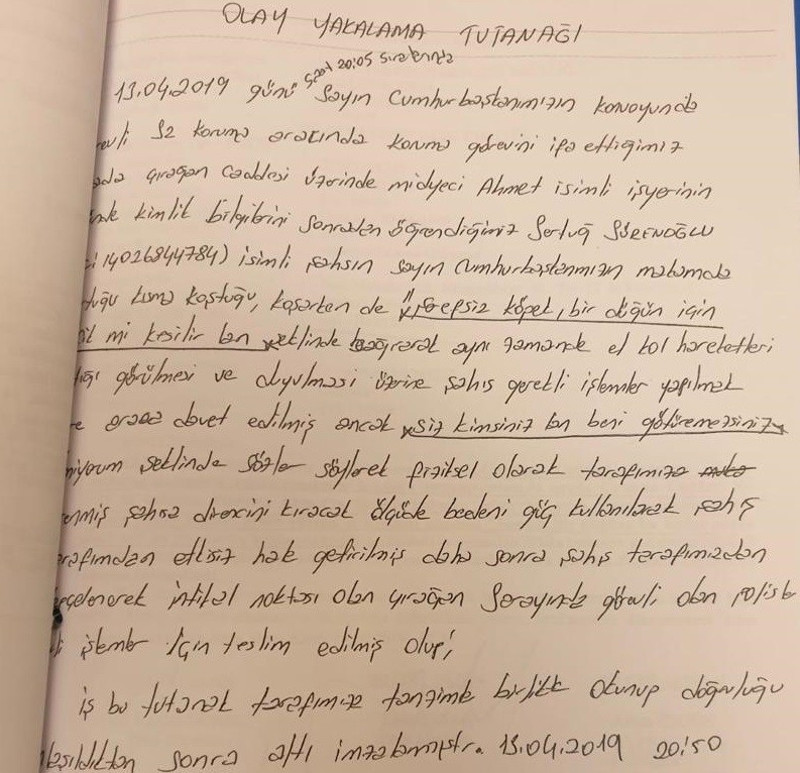 OLAY YAKALAMA TUTANAĞI
saat 20:05 sıralarında
13.04.2019 günü Sayın Cumhurbaşkanımızın konvoyunda
evli S2 koruma aracında koruma görevini ifa ettiğimiz
ada çırağan Caddesi üzerinde midyeci Ahmet isimli işyerinin
nde kimlik bilgilerini sonradan öğrendiğimiz Sertuğ SÜRENOĞLU
: 14026844784) isimli şahsın sayın Cumhurbaşkanımızın makamda
duğu kısma koştuğu, koşarken de "şerefsiz köpek, bir düğün için
mi kesilir lan şeklinde bağırarak aynı zamanda el kol hareketleri
ığı görülmesi ve duyulması üzerine şahıs gerekli işlemler yapılmak
e araca davet edilmiş ancak siz kimsiniz lan beni götüremezsiniz
miyorum şeklinde sözler söylerek fiziksel olarak tarafımıza
enmiş şahsa direncini kıracak ölçüde bedeni güç kullanılarak şahıs
arafımdan etkisiz hale getirilmiş daha sonra şahıs tarafımızdan
epçelenerek intikal noktası olan çırağan Sarayında görevli olan polisle
işlemler için teslim edilmiş olup;
iş bu tutanak tarafımıza tanzimle birlikte okunup doğruluğu
laşıldıktan sonra altı imzalanmıştır. 13.04.2019 20:50